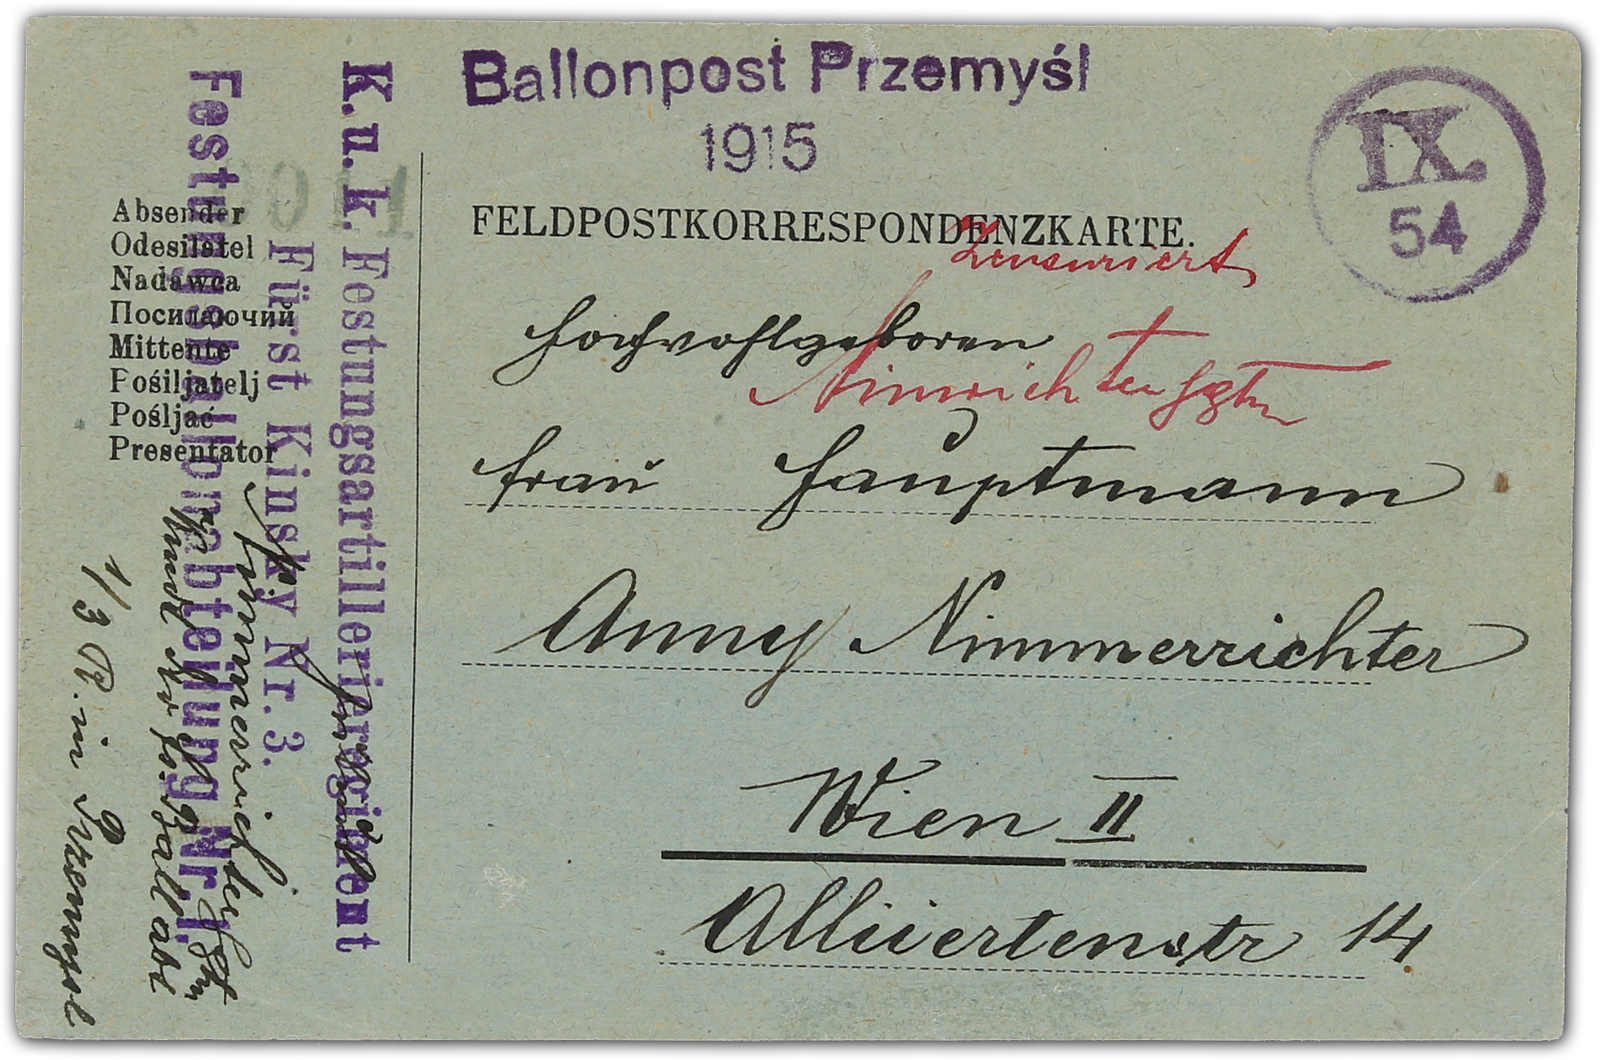 Ballonpost Przemyśl
1915
IX.
54
FELDPOSTKORRESPONDENZKARTE.
Zensuriert
Hochwohlgeboren
Frau Hauptmann
Anny Nimmerrichter
Wien II
Alliiertenstr 14
K.u.k. Festungsartillerieregiment
Fürst Kinsky Nr. 3.
Festungsballonabteilung Nr. 1.
Absender
Odesilatel
Nadawca
Посилаючий
Mittente
Pośiljatelj
Pośljać
Presentator
Nimmerrichter
1/3 R. in Przemysl